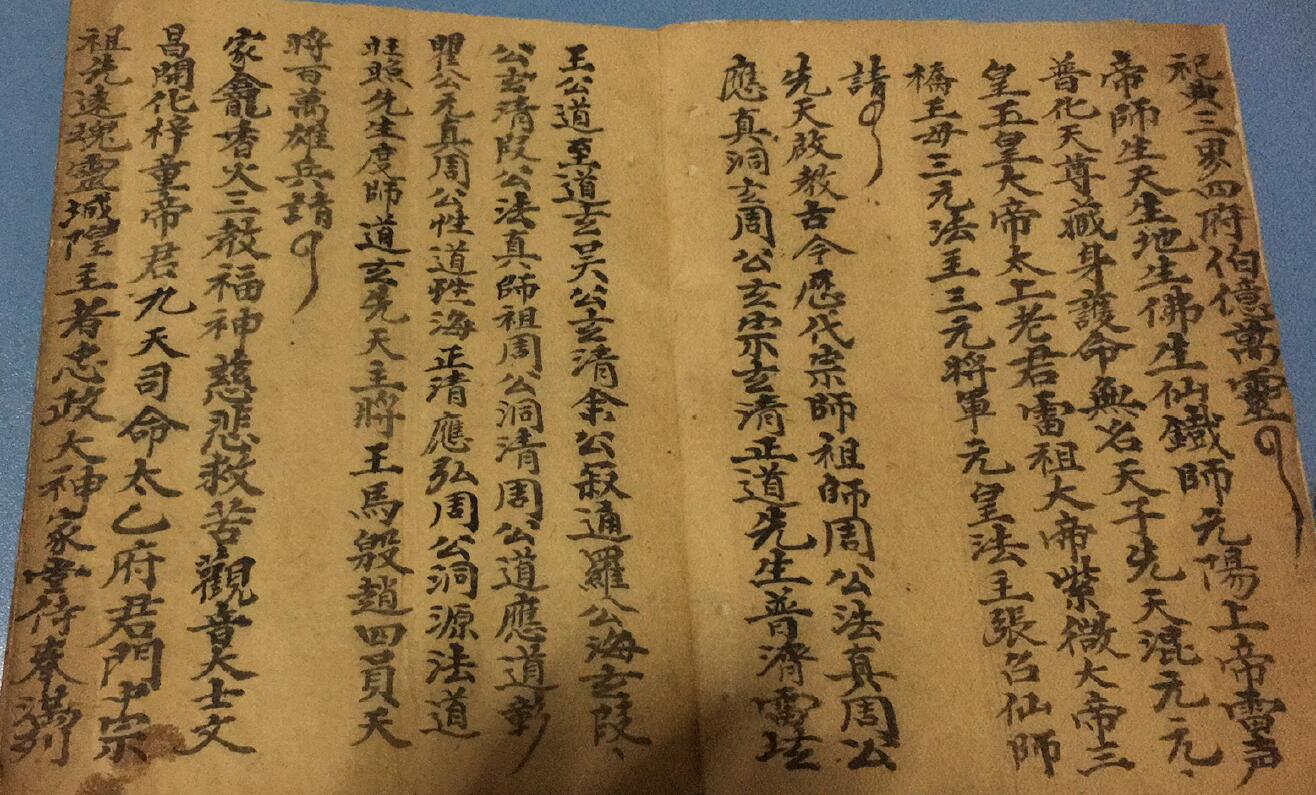 祀典三界四府佰億萬靈
帝師生天生地生佛生仙鐵師元陽上帝雷声
普化天尊藏身護命無名天子先天混元元、
皇玉皇大帝太上老君雷祖大帝紫微大帝三
橋王母三元法王三元将軍元皇法主張召仙師
請
先天啟教古今歷代宗師祖師周公法真周公
應真洞玄周公玄宗玄清正道先生普濟雷坛
王公道至道玄吴公玄清余公叔通羅公海玄段、
公玄清段公法真師祖周公洞清周公道應道彰
瞿公元真周公性道性海正清應弘周公洞源法道
旺照先生度師道玄先天主將王馬殷趙四員天
將百萬雄兵請
家龕香火三教福神慈悲救苦觀音大士文
昌開化梓童帝君九天司命太乙府君門中宗
祖先遠魂靈城隍王者忠政大神家堂侍奉滿列